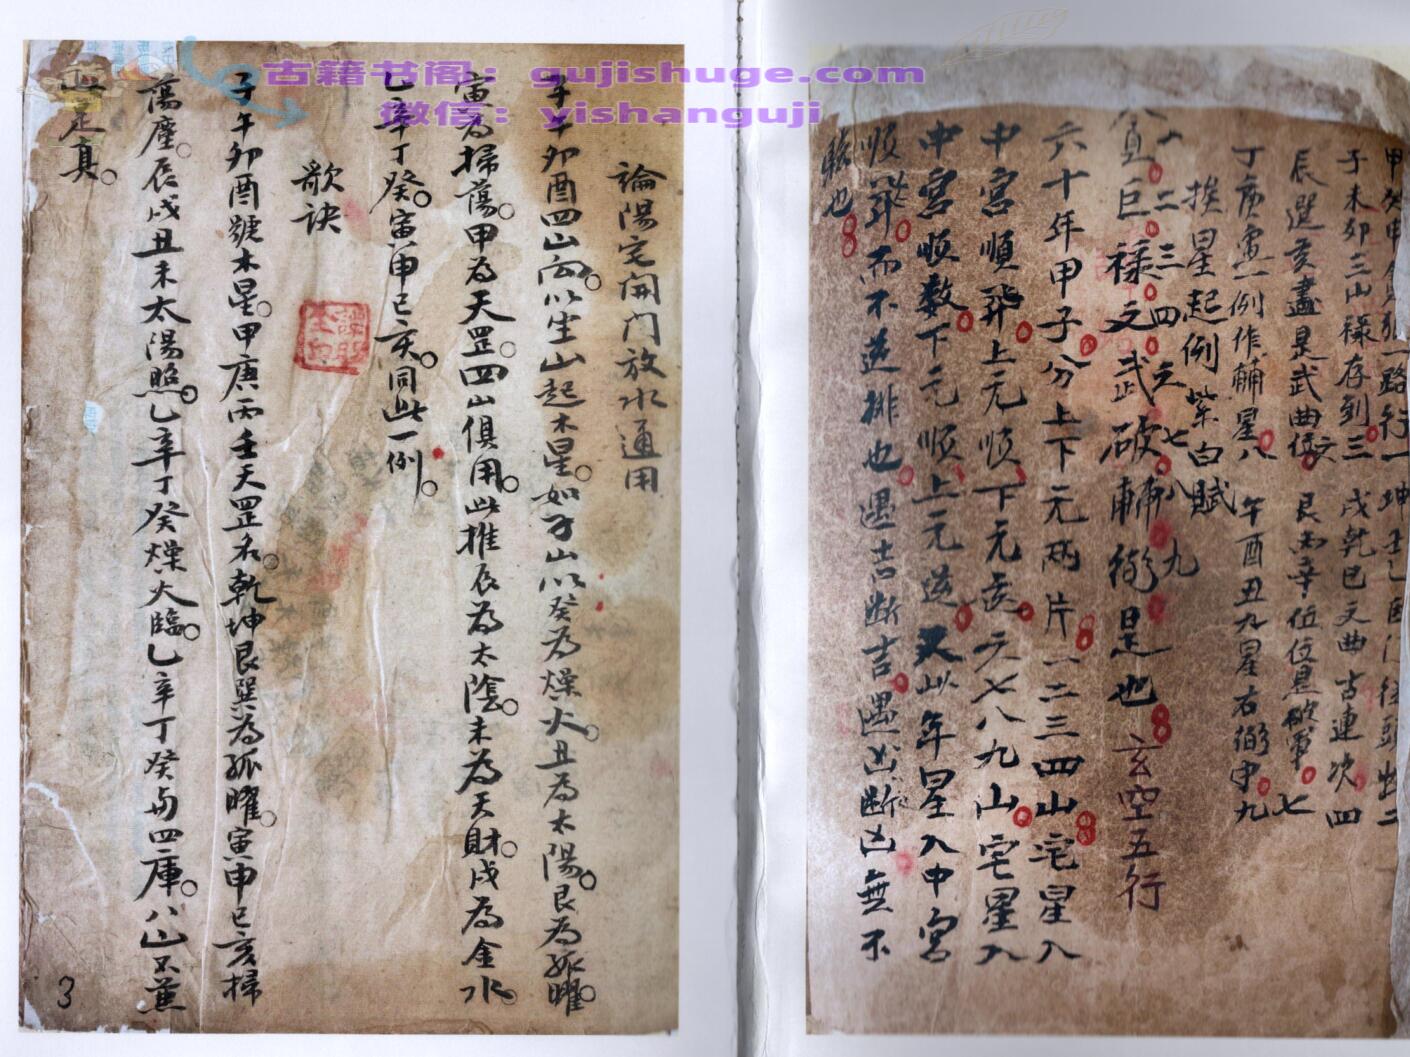 古籍书阁：gujishuge.com
微信：yishanguji
子未卯三山禄存到三 戌乾巳文曲古連次四
辰巽亥盡是武曲位 艮丙辛位位是破軍 七
丁庚寅一例作輔星八 午酉丑九星右弼守九
挨星起例紫白賦
一 二 三 四 六 七 八 九
貪巨禄文武破輔弼是也 玄空五行
六十年甲子分上下元兩片一二三四山宅星入
中宮順飛上元順下元逆六七八九山宅星入
中宮順数下元順上元逆又以年星入中宮
順飛而不逆排也遇吉断吉遇凶断凶無不
驗也
論陽宅開門放水通用
子午卯酉四山向以坐山起木星如子山以癸為燥火丑為太陽艮為孤曜
寅為掃蕩甲為天罡四山俱用此推辰為太陰未為天財戌為金水
乙辛丁癸寅申巳亥同此一例
歌訣
子午卯酉號木星甲庚丙壬天罡名乾坤艮巽為孤曜寅申巳亥掃
蕩塵辰戌丑未太陽照乙辛丁癸燥火臨乙辛丁癸与四庫八山不薫
是真
3